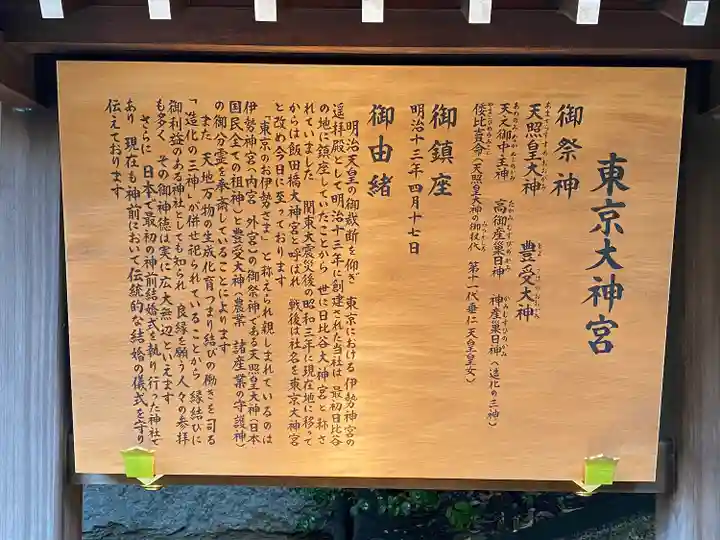 東京大神宮
御祭神
天照皇大神 豊受大神
天之御中主神 高御産巣日神 神産巣日神(造化の三神)
倭比賣命(天照皇大神の御杖代 第十一代垂仁天皇皇女)
御鎮座
明治十三年四月十七日
御由緒
明治天皇の御裁断を仰ぎ 東京における伊勢神宮の
遥拝殿として明治十三年に創建された当社は 最初日比谷
の地に鎮座していたことから 世に日比谷大神宮と称さ
れていました 関東大震災後の昭和三年に現在地に移って
からは飯田橋大神宮と呼ばれ 戦後は社名を東京大神宮
と改め今日に至っております
「東京のお伊勢さま」と称えられ親しまれているのは
伊勢神宮(内宮・外宮)の御祭神である天照皇大神(日本
国民全ての祖神)と豊受大神(農業 諸産業の守護神)
の御分霊を奉斎していることによります
また 天地万物の生成化育つまり結びの働きを司る
「造化の三神」が併せ祀られていることから 縁結びに
御利益のある神社としても知られ 良縁を願う人々の参拝
も多く その御神徳は実に広大無辺といえます
さらに 日本で最初の神前結婚式を執り行った神社で
あり 現在も神前において伝統的な結婚の儀式を守り
伝えております